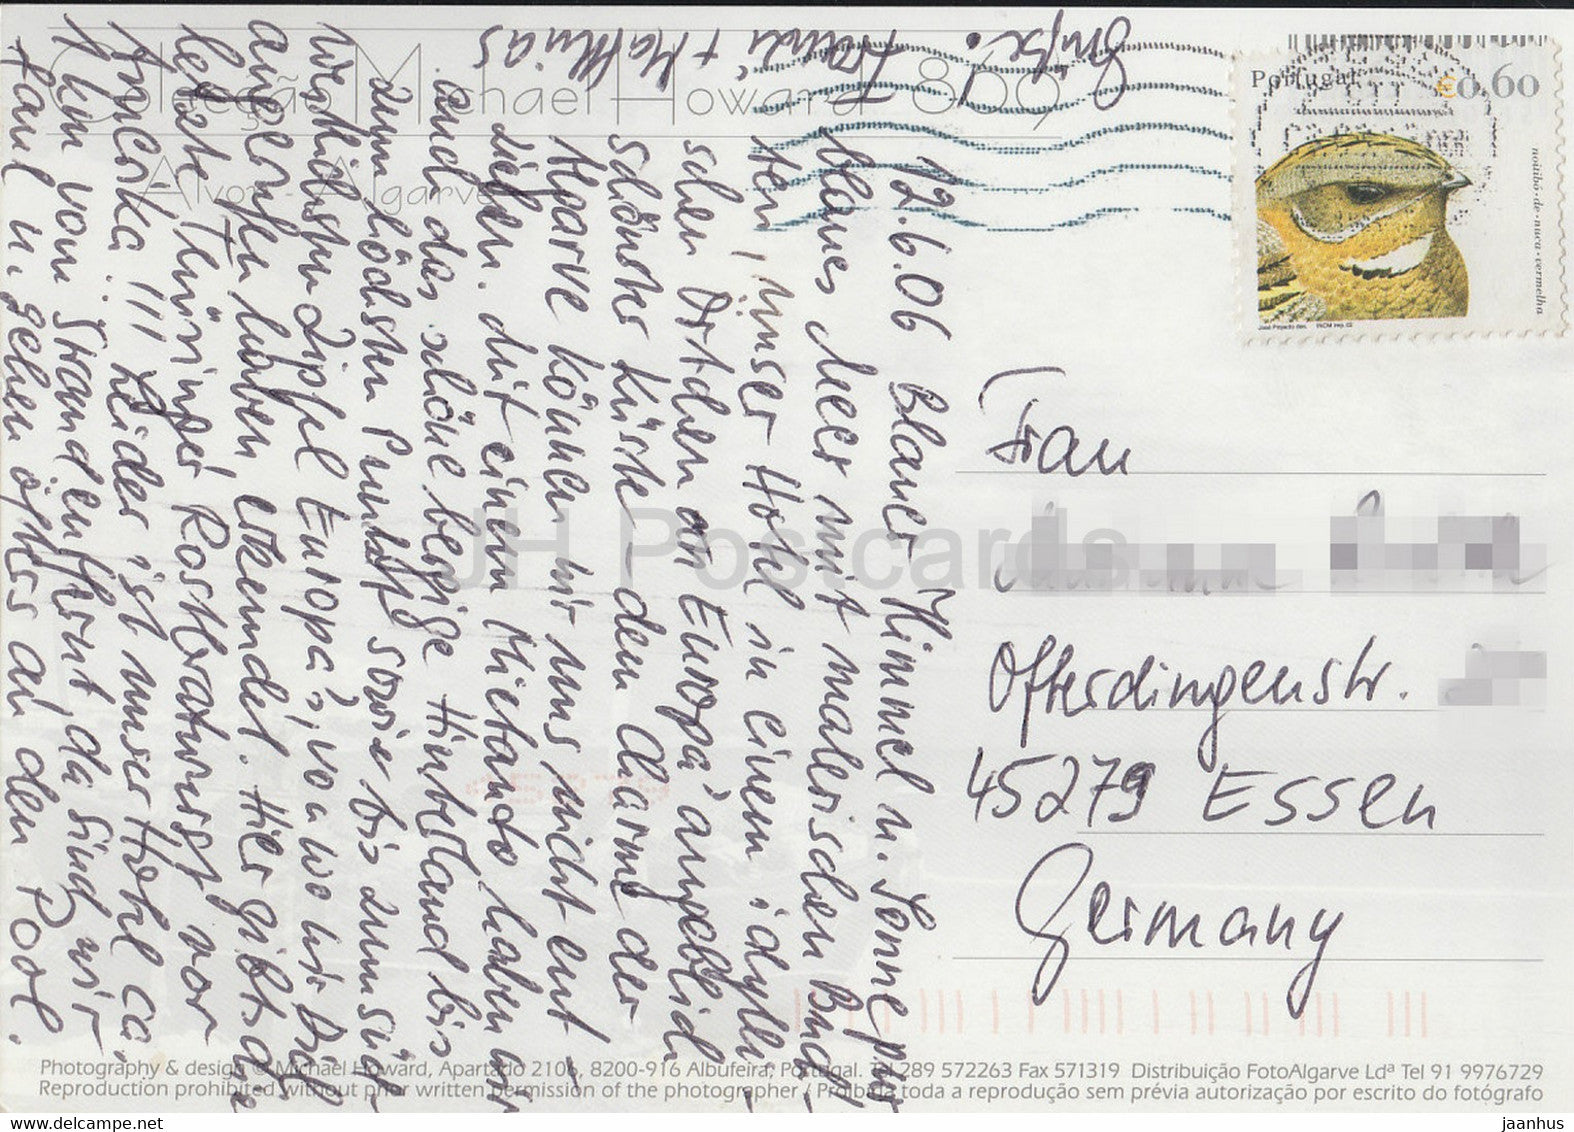 Colecção Michael Howard 869
Alvor - Algarve
12.6.06 Blauer Himmel u. Sonne pur,
blaues Meer mit malerischen Buch-
ten, unser Hotel in einem idylli-
schen Örtchen an Europa's angeblich
schönster Küste - dem Charme der
Algarve können wir uns nicht ent-
ziehen. Mit einem Mietauto haben wir
auch das schöne bergige Hinterland bis
zum höchsten Punkt sowie bis zum süd-
westlichsten Zipfel Europa's, wo wir
außerdem haben erkundet. Hier gibt's die
letzte Thüringer Rostbratwurst vor
Amerika!!! Leider ist unser Hotel ca.
4 km vom Strand entfernt, da sind wir
faul u. gehen öfters an den Pool.
Grüße. Heidi + Matthias
Portugal €0.60
noitibó-de-nuca-vermelha
José Projecto des. INCM imp. 02
Frau
Ofterdingenstr.
45279 Essen
Germany
JH Postcards
Photography & design © Michael Howard, Apartado 2106, 8200-916 Albufeira, Portugal. Tel 289 572263 Fax 571319 Distribuição FotoAlgarve Ldª Tel 91 9976729
Reproduction prohibited without prior written permission of the photographer / Proibida toda a reprodução sem prévia autorização por escrito do fotógrafo
www.delcampe.net
jaanhus